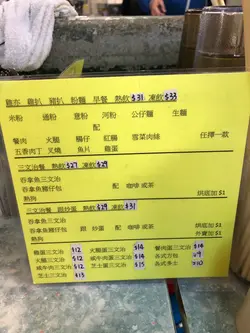 雞亦 雞扒 豬扒 粉麵 早餐 熱飲$31 凍飲$33
米粉 通粉 意粉 河粉 公仔麵 生麵
配
餐肉 火腿 腸仔 紅腸 雪菜肉絲 任擇一款
五香肉丁 叉燒 魚片 雞蛋
三文治餐 熱飲$27 凍飲$29
吞拿魚三文治
吞拿魚雞仔包 配 咖啡 或茶 烘底加 $1
熱狗
三文治餐 跟炒蛋 熱飲$29 凍飲$31
吞拿魚三文治 烘底加 $1
吞拿魚雞仔包 跟 炒蛋 配 咖啡 或茶 外賣加 $1
熱狗
雞蛋三文治 $12 火腿蛋三文治 $14 餐肉蛋三文治 $14
火腿三文治 $12 咸牛肉蛋三文治 $14 各式方包 $9
咸牛肉三文治 $12 芝士蛋三文治 $15 各式多士 $10
芝士三文治 $13